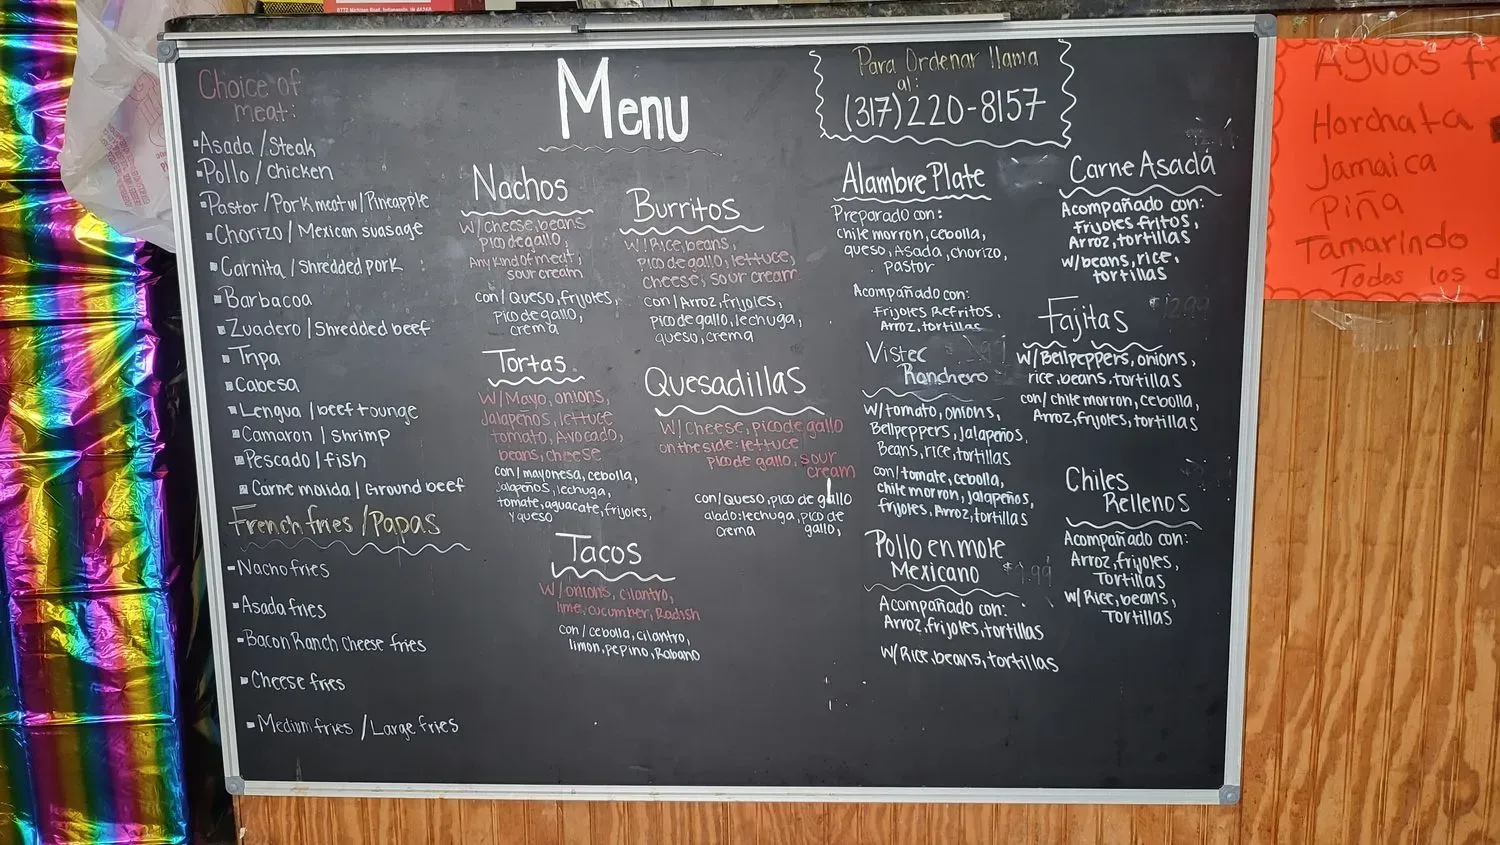 Choice of
meat:
Asada / Steak
Pollo / chicken
Pastor / Pork meat w/ Pineapple
Chorizo / Mexican suasage
Carnita / Shredded pork
Barbacoa
Zuadero / Shredded beef
Tripa
Cabesa
Lengua / beef tounge
Camaron / shrimp
Pescado / fish
Carne molida / Ground beef
French fries / Papas
- Nacho fries
Asada fries
Bacon Ranch Cheese fries
Cheese fries
Medium fries / Large fries
Menu
Nachos
W/ cheese, beans
pico de gallo,
Any kind of meat,
sour cream
con / Queso, frijoles,
pico de gallo,
crema
Tortas
W/ Mayo, onions,
Jalapeños, lettuce
tomato, Avocado,
beans, cheese
con / mayonesa, cebolla,
Jalapeños, lechuga,
tomate, aguacate, frijoles,
y queso
Burritos
W/ Rice, beans,
pico de gallo, lettuce,
cheese, sour cream
con / Arroz, frijoles,
pico de gallo, lechuga,
queso, crema
Quesadillas
W/ Cheese, pico de gallo
on the side: lettuce
pico de gallo, sour
cream
con / Queso, pico de gallo
alado: lechuga, pico de
crema gallo,
Tacos
W/ onions, cilantro,
lime, cucumber, Radish
con / cebolla, cilantro,
limon, pepino, Rabano
Para Ordenar llama
al:
(317) 220-8157
Alambre Plate
Preparado con:
chile morron, cebolla,
queso, Asada, chorizo,
pastor
Acompañado con:
Frijoles Refritos,
Arroz, tortillas
Vistec
Ranchero
W/ tomato, onions,
Bellpeppers, Jalapeños,
Beans, rice, tortillas
con / tomate, cebolla,
Chile morron, Jalapeños,
frijoles, Arroz, tortillas
Pollo en mole
Mexicano
Acompañado con:
Arroz, frijoles, tortillas
W/ Rice, beans, tortillas
Carne Asada
Acompañado con:
frijoles fritos,
Arroz, tortillas
W/ beans, rice,
tortillas
Fajitas
W/ Bellpeppers, onions,
rice, beans, tortillas
con / chile morron, cebolla,
Arroz, frijoles, tortillas
Chiles
Rellenos
Acompañado con:
Arroz, frijoles,
Tortillas
W/ Rice, beans,
Tortillas
Aguas fr
Horchata
Jamaica
Piña
Tamarindo
Todos los d